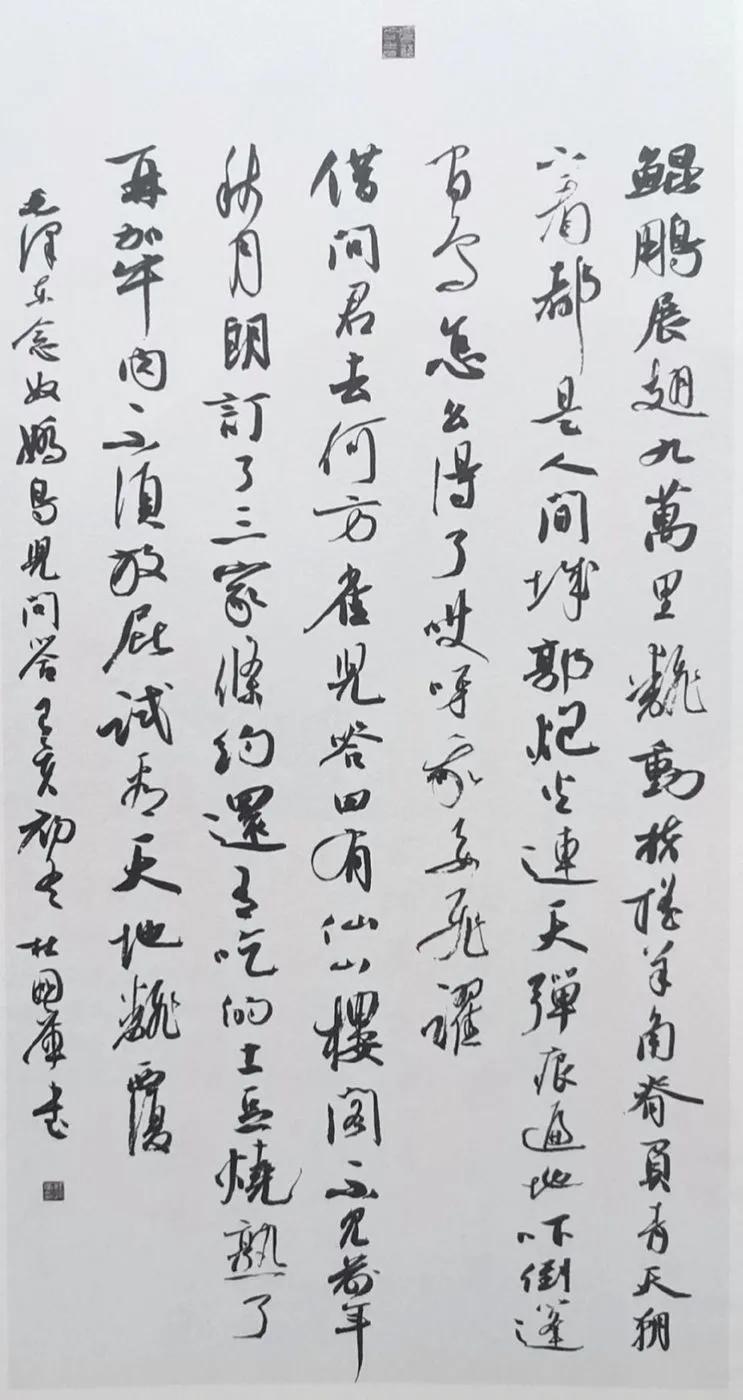 鯤鵬展翅九萬里飜動扶搖羊角背負青天朝
下看都是人間城郭炮火連天彈痕遍地吓倒蓬
間雀怎么得了哎呀我要飛躍
借問君去何方雀兒答曰有仙山樓閣不見前年
秋月朗訂了三家條約還有吃的土豆燒熟了
再加牛肉不須放屁試看天地飜覆
毛澤東念奴嬌鳥兒問答己亥初冬杜國庫書